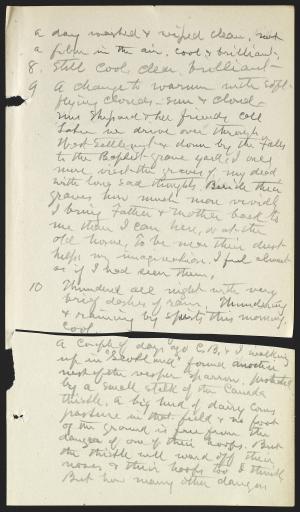 a day washed & wiped clean, not
a film in the air. Cool & brilliant.
8. Still cool, clear, brilliant—
9 A change to warmer with soft
flying clouds— sun & cloud—
Mrs Shepard & her friends call
Later we drive over through
West Settlement & down by the Falls
to the Baptist grave yard & once
more visit the graves of my dead
with long sad thoughts. Beside their
graves how much more vividly
I bring Father & Mother back to
me than I can here, or at the
old home, to be near their dust
helps my imagination. I feel almost
as if I had seen them.
10 Thundered all night with very
brief dashes of rain. Thundering
& raining by spurts this morning.
Cool.
A couple of days ago C.B. & I walking
up in "Scotland" found another
nest of the vesper sparrow, protected
by a small stalk of the Canada
thistle. A big herd of dairy cows
pasture in that field & no foot
of the ground is free from the
danger of one of their hoofs. But
the thistle will ward off their
noses & their hoofs too I think
But how many other dangers